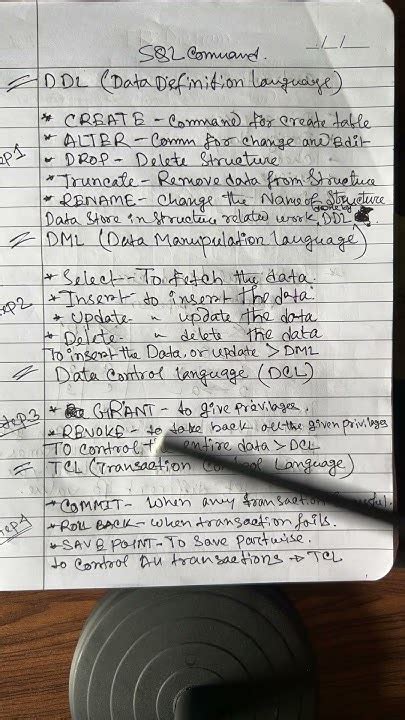 SQL Command.
DDL (Data Definition language)
* CREATE - Command for create table
Step1
* ALTER - Comm for change and Edit
* DROP - Delete Structure
* Truncate - Remove data from Structure
* RENAME - change the Name of Structure
Data Store in Structure related work DDL
DML (Data Manupulation language)
* Select - To fetch the data.
* Insert to insert the data.
Step2
* Update - " update the data
* Delete - " delete the data
To insert the Data, or update > DML
Data Control language (DCL)
Step3
* GRANT - to give privilages.
* REVOKE - to take back all the given privilages
TO control the entire data > DCL
TCL (Transaction Control Language)
* COMMIT - When any transaction
Step4
* ROLL BACK - when transaction fails.
* SAVE POINT - To save partwise.
to control All transactions → TCL